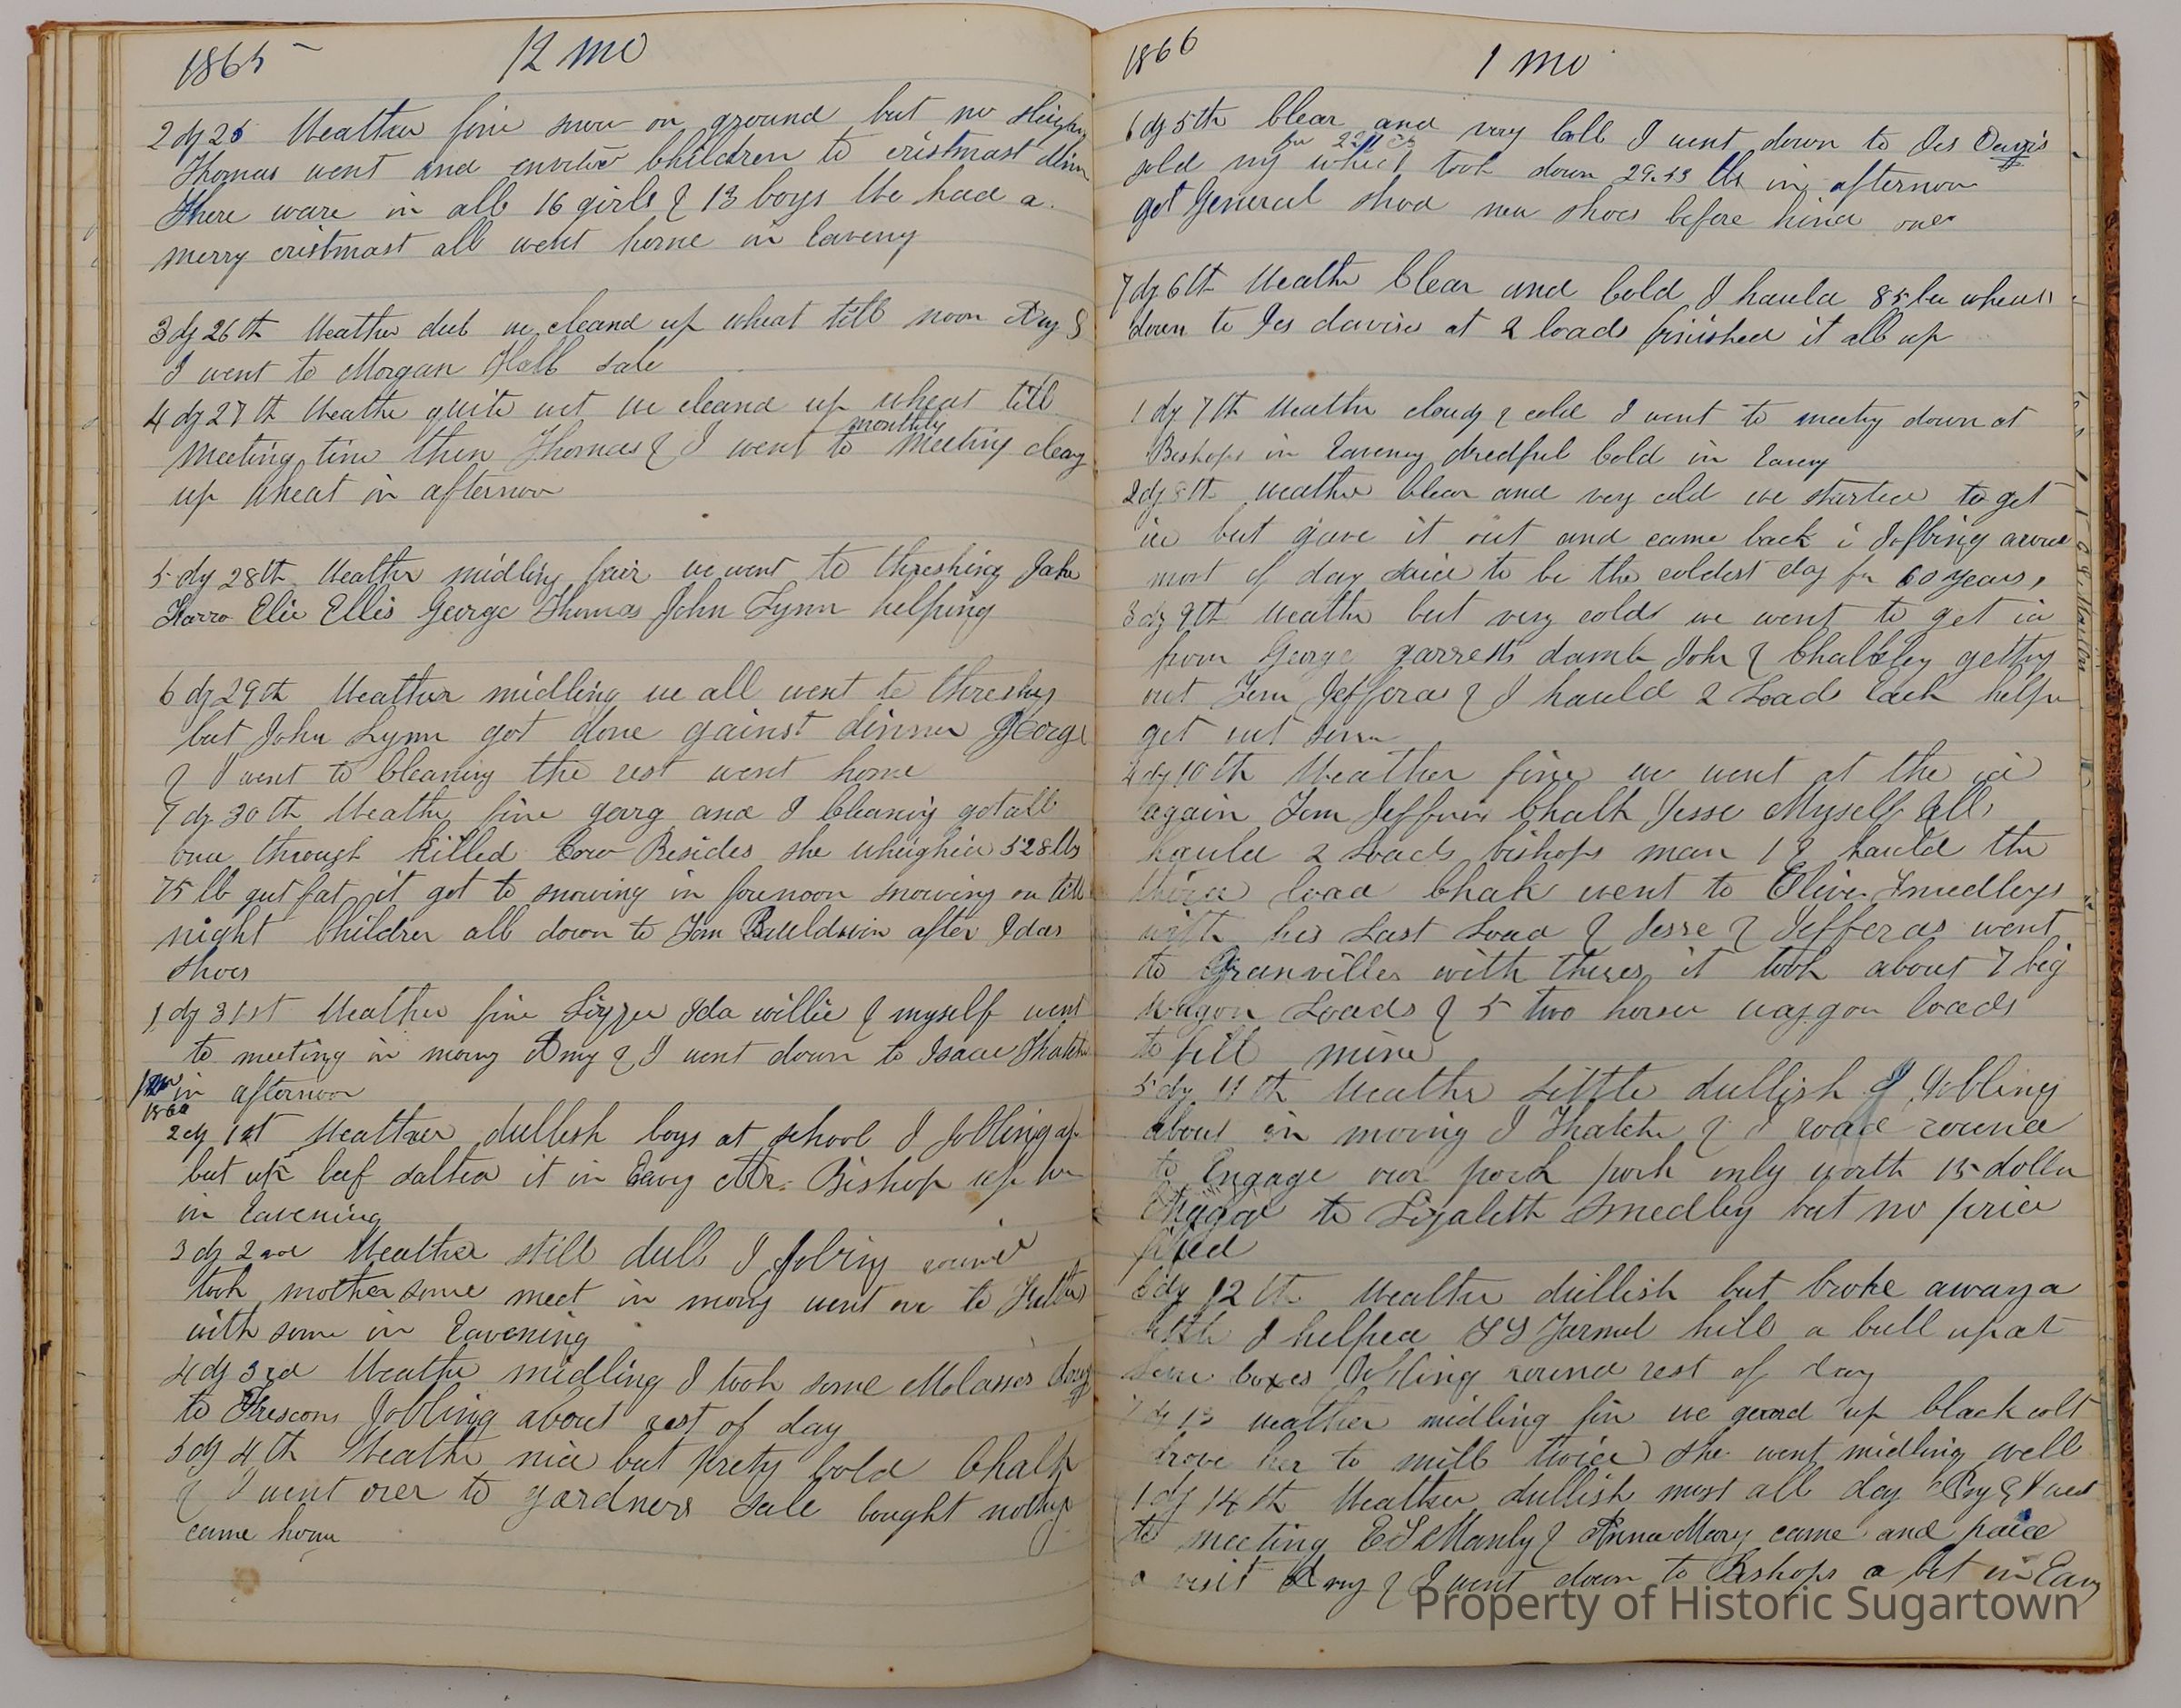 1865 12 mo
2 dy 25 Weather fine snow on ground but no
Thomas went and Children to cristmast
There ware in all 16 girls & 13 boys We had a
merry cristmast all went home in Eaveny
3 dy 26th Weather dul we cleand up wheat till noon Amy &
I went to Morgan Hall sale
4 dy 27th Weathe quite wet we cleand up wheat till
monthly
Meeting time then Thomas & I went to Meeting cleang
up Wheat in afternoon
5 dy 28th Weather midling fair we went to threshing Jake
Elie Ellis George Thomas John Lynn helping
6 dy 29th Weather midling we all went to threshing
but John Lynn got done gainst dinner George
& I went to Cleaning the rest went home
7 dy 30th Weathe fine georg and I Cleanig got all
once through Killed Cow Besides she 528 lbs
75 lb gut fat it got to snowing in forenoon snowing on till
night Children all down to Tom after Idas
shoes
1 dy 31st Weather fine Lizzie Ida willie & myself went
to meeting in morng Amy & I went down to Isaac
in afternoon
1866
2 dy 1st Weather dullish boys at school I Jobling
but up beef salted it in Eavng Mr. Bishop up
in Eavening
3 dy 2nd Weather still dull I Jobing round
took mother some meet in morng went to
with some in Eavening
4 dy 3rd Weathe midling I took some Molasses down
to Jobling about rest of day
5 dy 4th Weathe nice but prety Cold Chalk
& I went over to gardners Sale bought nothg
came home
1866 1 mo
6 dy 5th Clear and very Coll I went down to Jes Davis
sold my wheet took down 29.13 lbs in afternoon
got General shod new shoes before hind ones
7 dy 6th Weathe Clear and Cold I hauld 85 bu wheat
down to Jes davises at 2 loads finished it all up
1 dy 7th Weathe cloudy & cold I went to meetig down at
Bishops in Eaveng dredful Cold in Eaveng
2 dy 8th weather Clear and very cold we started to get
ice but gave it out and came back
most of day said to be the coldest day for 60 years,
3 dy 9th Weathe but very cold we went to get ice
from George garretts damb John & Chalkley getting
out Jim Jefferas & I hauld 2 Load Each helpe
get out some
4 dy 10th Weather fine we went at the ice
again Jim Chalk Jesse Myself all
hauld 2 Loads bishops man 12 hauld the
third load Chalk went to Smedleys
with his Last Load & Jesse & Jefferas went
to Granvilles with theirs it took about 7 big
wagon Loads & 5 two horse waggon loads
to fill mine
5 dy 11th Weathe Little dullish I Jobling
about in morning I Thatche & I road round
to Engage our pork pork only worth 15 dolla
to Smedley but no price
fixed
6 dy 12th Weathe dullish but broke away a
I helped kill a bull up at
boxes Jobling round rest of day
7 dy 13 weather midling fin we geard up black colt
drove her to mill twice she went midling well
1 dy 14th Weather dullish most all day
to meeting Manly & Anna Mary came and paid
a visit Amy & I went down to Bishops a bit in Eavng
Property of Historic Sugartown